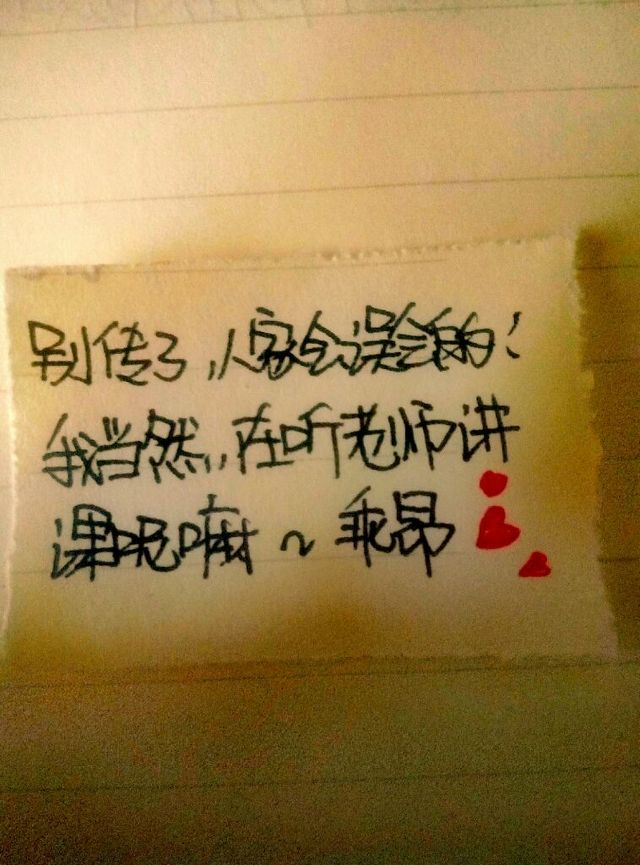 别传了，人家会误会的！
我当然，在听老师讲
课呢嘛～乖昂